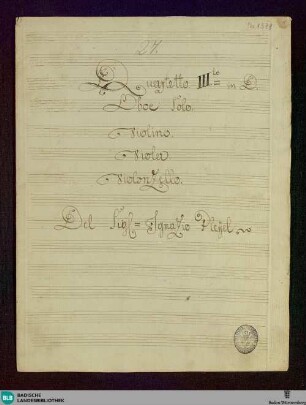 27.
Quartetto III.to in D.
Oboe Solo.
Violino.
Viola
Violonzello.
Del Sigl= Ignazio Pleÿel
BLB
BADISCHE
LANDESBIBLIOTHEK
Baden-Württemberg